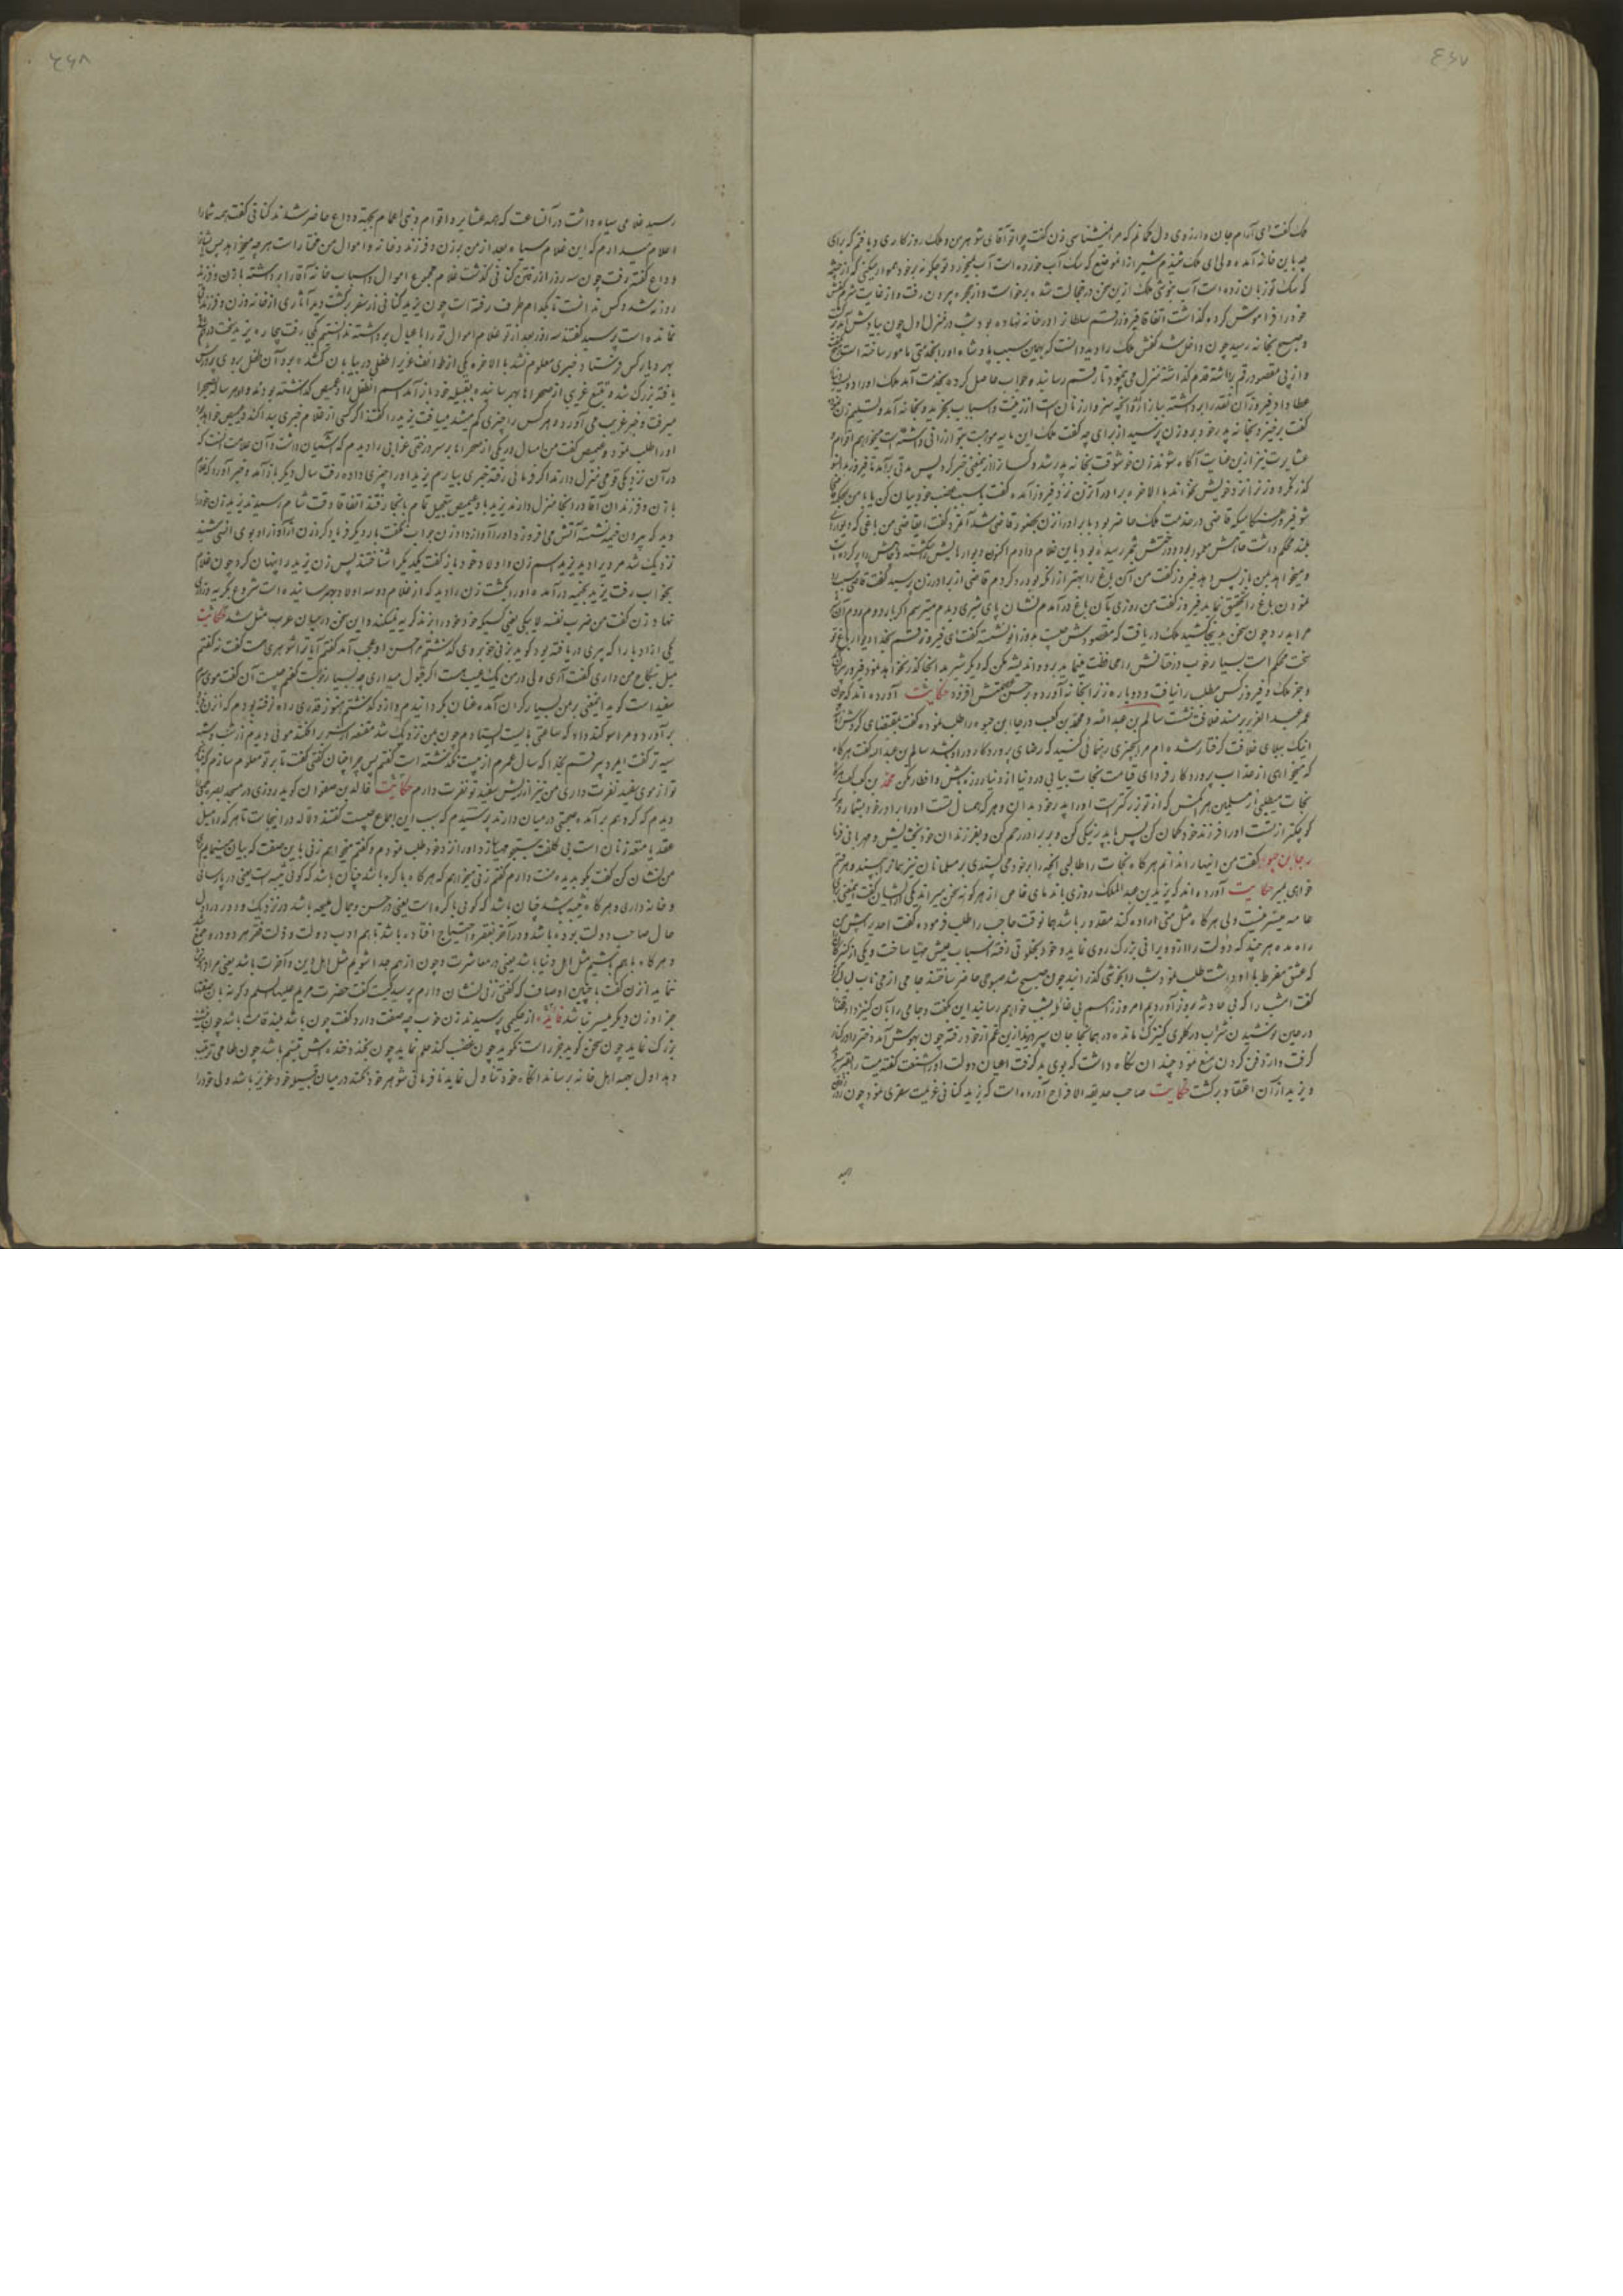 ٤٦٧
ملک گفت ای آرام جان و ارزوی دل گمانم که مرا نمیشناسی زن گفت چرا تو آقای شوهر من و ملک روزگاری
باین خانه آمده ولی ای ملک شنیدم شیر از آن موضع که سک آب خورده است آب نمیخورد تو چگونه بر خود هموار میکنی که از چشمه
که سک تو زبان زده است آب بنوشی ملک ازین سخن در خجالت شده برخواست و از حجره بیرون رفت و از غایت شرم کفش
خود را فراموش کرده گذاشت اتفاقا فیروز رقم سلطان را در خانه نهاده بود شب در منزل اول چون بیادش آمد
و صبح بخانه رسید چون داخل شد کفش ملک را دید و دانست که بهمین سبب پادشاه او را بخدمتی مامور ساخته است
و از پی مقصد رقم برداشته قدم گذاشته منزل می پیمود تا رقم رسانیده جواب حاصل کرده بخدمت آمد ملک او را دویست دینار
عطا داد فیروز آن نقد را برداشته ببازار و آنچه سزاوار زنان است از زینت و اسباب بخرید و بخانه آمد و تسلیم زن
گفت برخیز و بخانه پدر خود برو زن پرسید از برای چه گفت ملک این مایه موهبت بتو ارزانی داشته است میخواهم اقوام و
عشایرت نیز ازین عنایت آگاه شوند زن خوشوقت بخانه پدر شد و کسان را از اینمعنی خبر کرد پس مدتی برآمد تا فیروز بدانسو
گذر نکرد و زن را نزد خویش نخواند بالاخره برادر آن زن نزد فیروز آمده گفت یا سبب غضب خود بیان کن یا با من بمحکمه
شو فیروز هنگامیکه قاضی در خدمت ملک حاضر بود با برادر زن بحضور قاضی شد آنمرد گفت ایقاضی من باغی که دیوارهای
بلند محکم داشت چاهش معمور بود و درختش ثمر رسیده بود باین غلام دادم اکنون دیوارهایش شکسته و چاهش را پر کرده است
و میخواهد بمن باز پس دهد فیروز گفت من آن باغ را بهتر از آنکه بود رد کردم قاضی از برادر زن پرسید گفت
نمودن باغ را تحقیق نماید فیروز گفت من روزی بآن باغ درآمدم نشان پای شیری دیدم میترسم اگر بار دوم روم آن شیر
مرا بدرد چون سخن بدینجا کشید ملک دریافت که مقصودش چیست بدو زانو نشسته گفت ای فیروز قسم بخدا دیوار باغ تو
سخت محکم است بسیار خوب درختانش را محافظت مینماید برو و اندیشه مکن که دیگر شیر بدانجا گذر نخواهد نمود
و جز ملک و فیروز کس مطلب را نیافت و دوباره زن را بخانه آورده بر حسن صحبتش افزود حکایت آورده اند که چون
عمر عبد العزیز بمسند خلافت نشست سالم بن عبد الله و محمد بن کعب و رجا ابن حیوه را طلب نموده گفت بمقتضای گردش
اینک ببلای خلافت گرفتار شده ام مرا بچیزی رهنمائی کنید که رضای پروردگار در او باشد سالم بن عبد الله گفت هرگاه
که میخواهی از عذاب پروردگار فردای قیامت نجات بیابی در دنیا از دنیا روزه باش و افطار مکن محمد بن کعب گفت
نجات میطلبی از مسلمین هر کس که از تو بزرگتر است او را پدر خود بدان و هر که همسال تست او را برادر خود بشمار و هر که
کوچکتر از تست او را فرزند خود گمان کن پس با پدر نیکی کن و بر برادر رحم کن و بفرزندان خود بخشایش و مهربانی فرما
رجا بن حیوه گفت من اینها را ندانم هرگاه نجات را طالبی آنچه را بر خود می پسندی بر مسلمانان نیز بپسند
خواهی بمیر حکایت آورده اند که یزید بن عبد الملک روزی با ندمای خاص از هر گونه سخن میراند یکی از ایشان گفت
عامه میسر نیست ولی هرگاه مثل منی اراده کند مقدور باشد همانوقت حاجب را طلب فرموده گفت احدی را پیش من
راه مده هر چند که دولت را اراده ویرانی بزرگ روی نماید و خود بخلوتی رفته اسباب عیش مهیا ساخت و یکی از کنیزکان
که عشق مفرط با او داشت طلب نمود شب را بخوشی گذرانید چون صبح شد صبوحی حاضر ساختند جامی از می ناب
گفت امشب را که بی حادثه بروز آوردیم امروز را هم بی غائله بشب خواهم رسانید این بگفت و جامی را بآن کنیز داد
در حین نوشیدن شراب در گلوی کنیزک مانده در همانجا جان سپرد یزید ازین غم از خود رفته چون بهوش آمد دختر را در کنار
گرفت و از دفن کردن منع نمود چندان نگاه داشت که بوی بد گرفت اعیان دولت او را شنعت گفته میت را بقبر
و یزید از آن اعتقاد برگشت حکایت صاحب حدیقه الافراح آورده است که یزید کنانی عزیمت سفری نمود چون
٤٦٨
رسید غلامی سیاه داشت در آنساعت که همه عشایر و اقوام و بنی اعمام بجهة وداع حاضر شدند کنانی گفت همه شما را
اعلام میدارم که این غلام سیاه بعد از من بر زن و فرزند و خانه و اموال من مختار است هر چه میخواهد
وداع گفته رفت چون سه روز از رفتن کنانی گذشت غلام مجموع اموال و اسباب خانه آقا را برداشته با زن و فرزند
روانه شد و کس ندانست تا بکدام طرف رفته است چون یزید کنانی از سفر برگشت دید آثاری از خانه و زن و فرزند
نمانده است پرسید گفتند سه روز بعد از تو غلام اموال تو را با عیال برداشته ندانستیم کجا رفت بیچاره یزید
بهر دیار کس فرستاد خبری معلوم نشد بالاخره یکی از طوائف عرب را طفلی در بیابان گمشده بود و آن طفل
یافته بزرگ شد و تتبع غریبی از صحراها بهم رسانیده بقبیله خود باز آمد اسم انطفل را دعمیص گذاشته بودند
میرفت و خبر غریب می آورد و هر کس را چیزی گم میشد میافت یزید را گفتند اگر کسی از غلام خبری پیدا کند دعمیص خواهد بود
او را طلب نمود دعمیص گفت من امسال در یکی از صحراها بر سر درختی غرابی را دیدم که آشیان داشت و آن علامت آنست که
در آن نزدیکی قومی منزل دارند اگر فرمائی رفته خبری بیارم یزید او را چیزی داده رفت سال دیگر باز آمد و خبر آورد که غلام
با زن و فرزندان آقا در آنجا منزل دارند یزید با دعمیص بتعجیل تمام بانجا رفتند اتفاقا وقت شام رسیدند یزید زن خود را
دید که بیرون خیمه نشسته آتش می افروزد او را آواز داد زن جواب نگفت بار دیگر فریاد کرد زن از آواز او بوی آشنائی شنید
نزدیک شد مرد را دید یزید اسم زن و اولاد خود باز گفت یکدیگر را شناختند پس زن یزید را پنهان کرد چون غلام
بخواب رفت یزید بخیمه درآمده او را بکشت زن را دید که از غلام دو سه اولاد بهم رسانیده است شروع بگریه و زاری
نهاد زن گفت من ضرب نفسه لا یبکی یعنی کسیکه خود خود را بزند گریه نمیکند و این سخن در میان عرب مثل شد حکایت
یکی از ادبا را که پیری دریافته بود گوید بزنی خوبروی گذشتم مرا حسن او عجب آمد گفتم آیا ترا شوهری هست گفت نه گفتم
میل بنکاح من داری گفت آری ولی در من یک عیب هست اگر قبول میداری چه بسیار خوبست گفتم چیست آن گفت موی سرم
سفید است گوید اینمعنی بر من بسیار گران آمده عنان بگردانیدم و از و گذشتم هنوز قدری راه نرفته بودم که آن زن فریاد
برآورد و مرا سوگند داد که ساعتی بایست ایستادم چون بمن نزدیک شد مقنعه از سر افکند موئی دیدم از شب
سیه تر گفت ایمرد پیر قسم بخدا که سال عمرم از بیست نگذشته است گفتم پس چرا چنان گفتی گفت تا بر تو معلوم سازم که چنانکه
تو از موی سفید نفرت داری من نیز از ریش سفید تو نفرت دارم حکایت خالد بن صفوان گوید روزی در مسجد بصره
دیدم که گرد هم برآمده صحبتی در میان دارند پرسیدم که سبب این اجماع چیست گفتند دلاله در اینجاست تا هر که را میل
عقد یا متعه زنان است بی کلفت بجستجو مهیا سازد او را نزد خود طلب نمودم و گفتم میخواهم زنی باین صفت که بیان مینمایم
من نشان کن گفت بگو بدیده منت دارم گفتم زنی میخواهم که هرگاه باکره باشد چنان باشد که گوئی ثیبه است یعنی در پارسائی
و خانه داری و هرگاه ثیبه باشد چنان باشد که گوئی باکره است یعنی در حسن و جمال ملیحه باشد در نزدیک و دور در اول
حال صاحب دولت بوده باشد و در آخر بفقر و احتیاج افتاده باشد تا هم ادب دولت و ذلت فقر هر دو در او جمع
و هرگاه با هم باشیم مثل اهل دنیا باشد یعنی در معاشرت و چون از هم جدا شویم مثل اهل دین و آخرت باشد یعنی مراد
نماید آن زن گفت با چنین اوصاف که گفتی زنی نشان دارم پرسید کیست گفت حضرت مریم علیها السلم و گرنه باین صفتها
جز او زن دیگر میسر نباشد فایده از حکیمی رسیدند زن خوب چه صفت دارد گفت چون باشد بلند قامت باشد چون نشیند
بزرگ نماید چون سخن گوید جز راست نگوید چون غضب کند حلم نماید چون بخندد خنده اش تبسم باشد چون طعامی ترتیب
دهد اول بهمه اهل خانه برساند آنگاه خود تناول نماید نافرمانی شوهر خود نکند در میان قبیله خود عزیز باشد ولی خود را